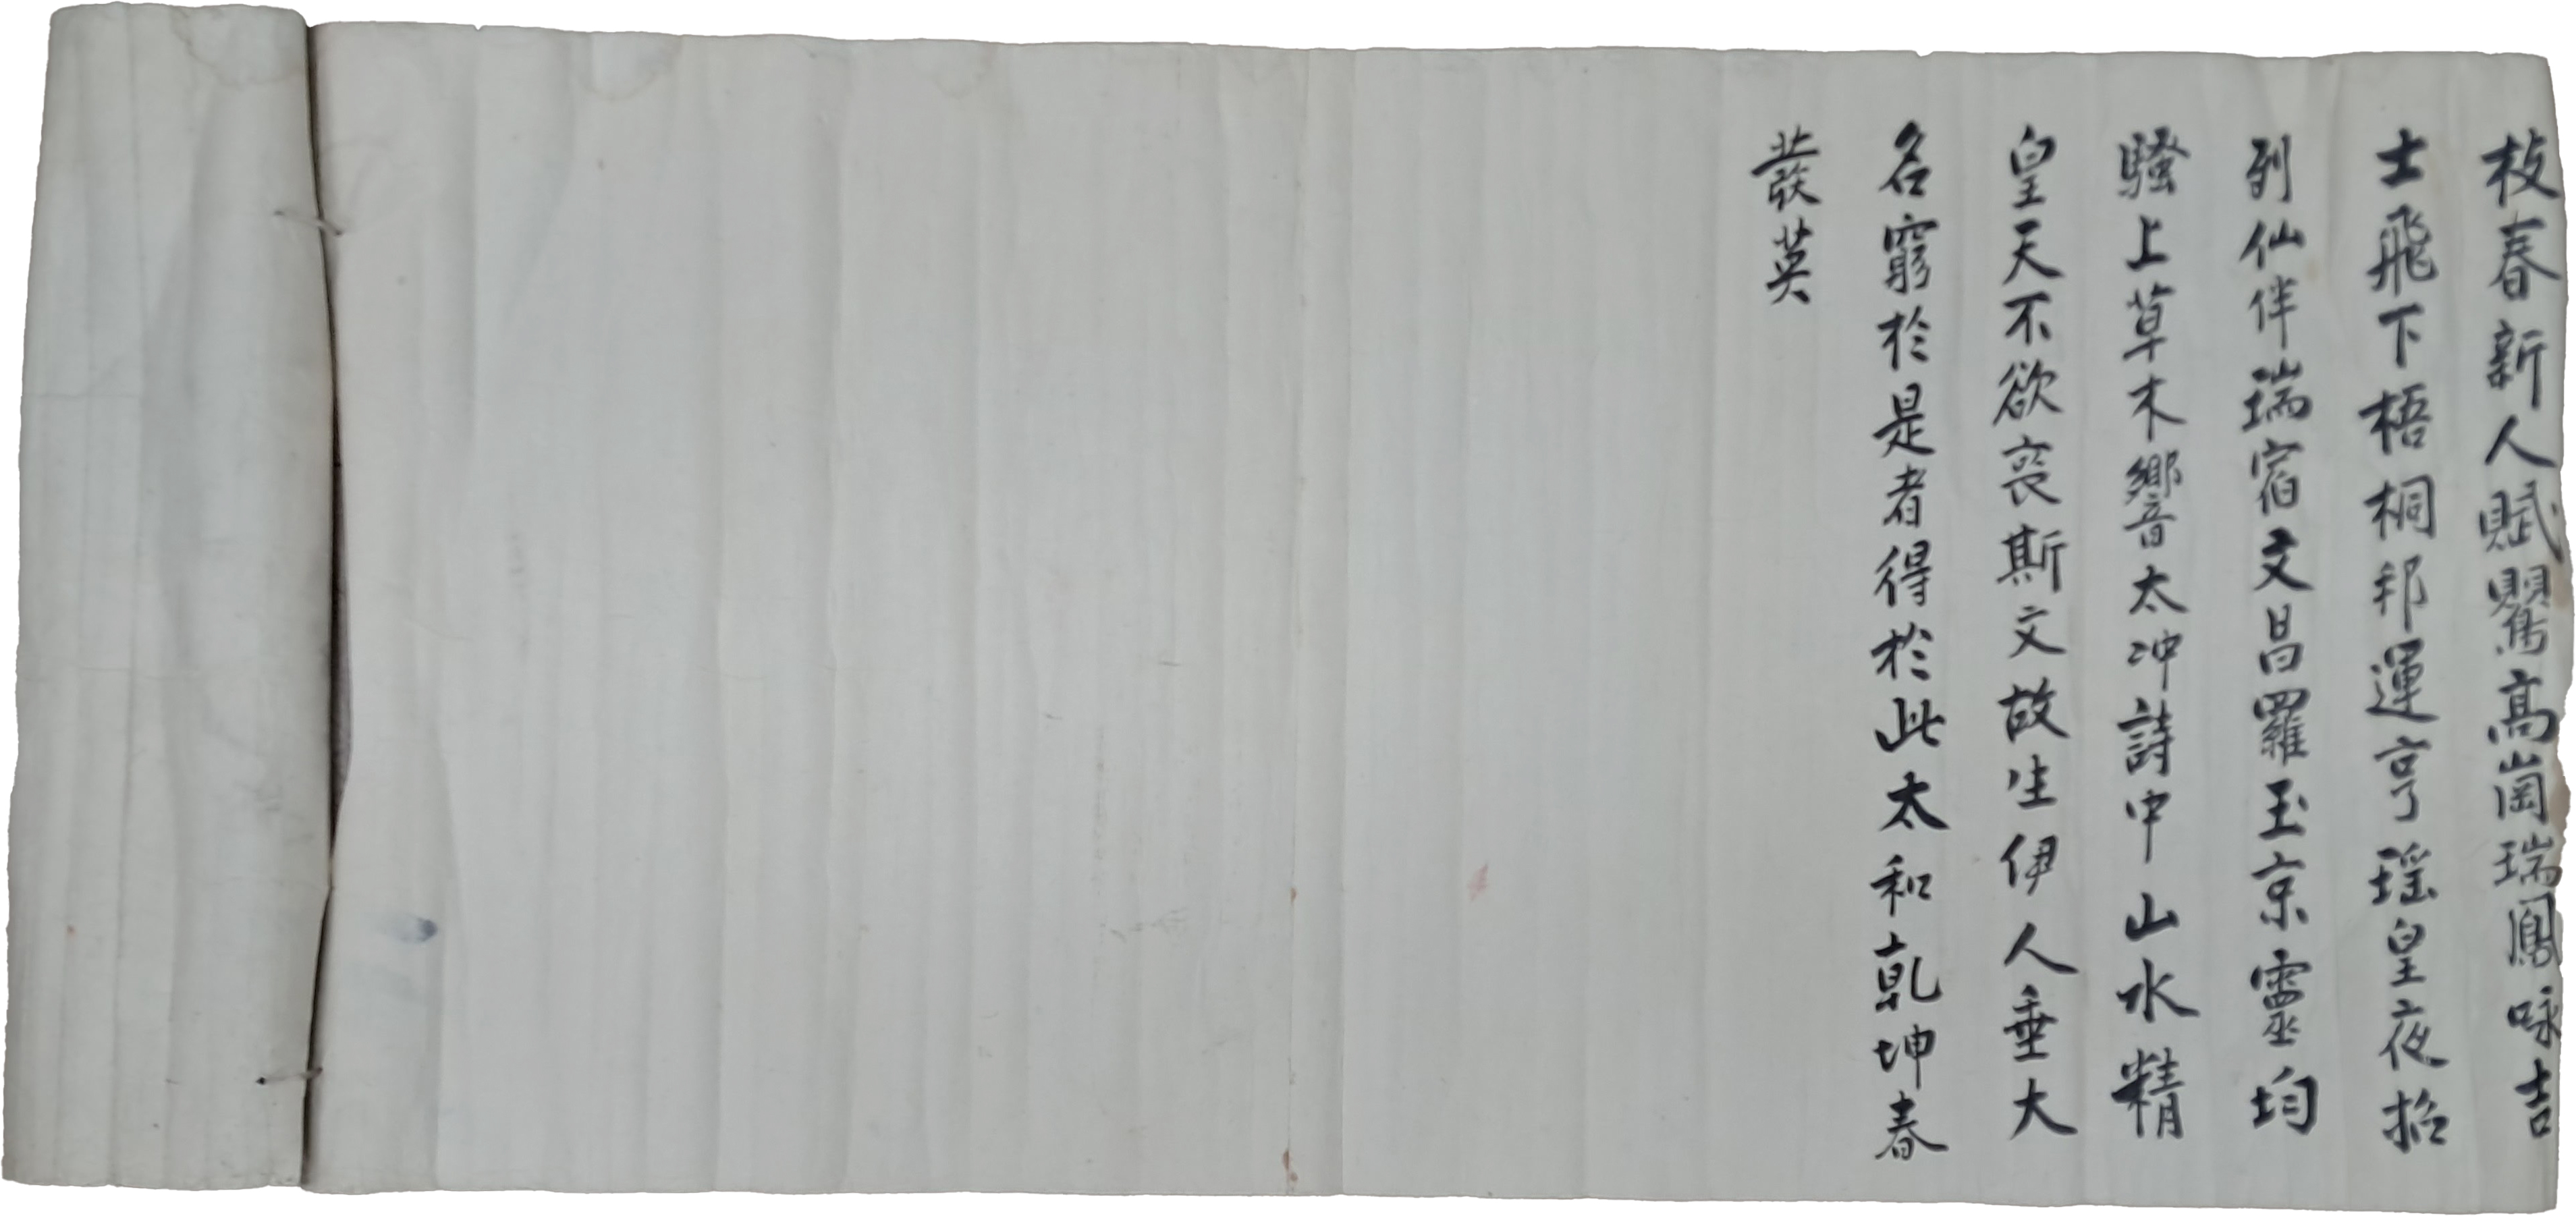 枝春新人賦驚高崗瑞鳳咏吉
士飛下梧桐邦運亨瑶皇夜招
列仙伴瑞宿文昌羅玉京靈均
騷上草木響太冲詩中山水精
皇天不欲喪斯文故生伊人垂大
名窮於是者得於此太和乾坤春
發英